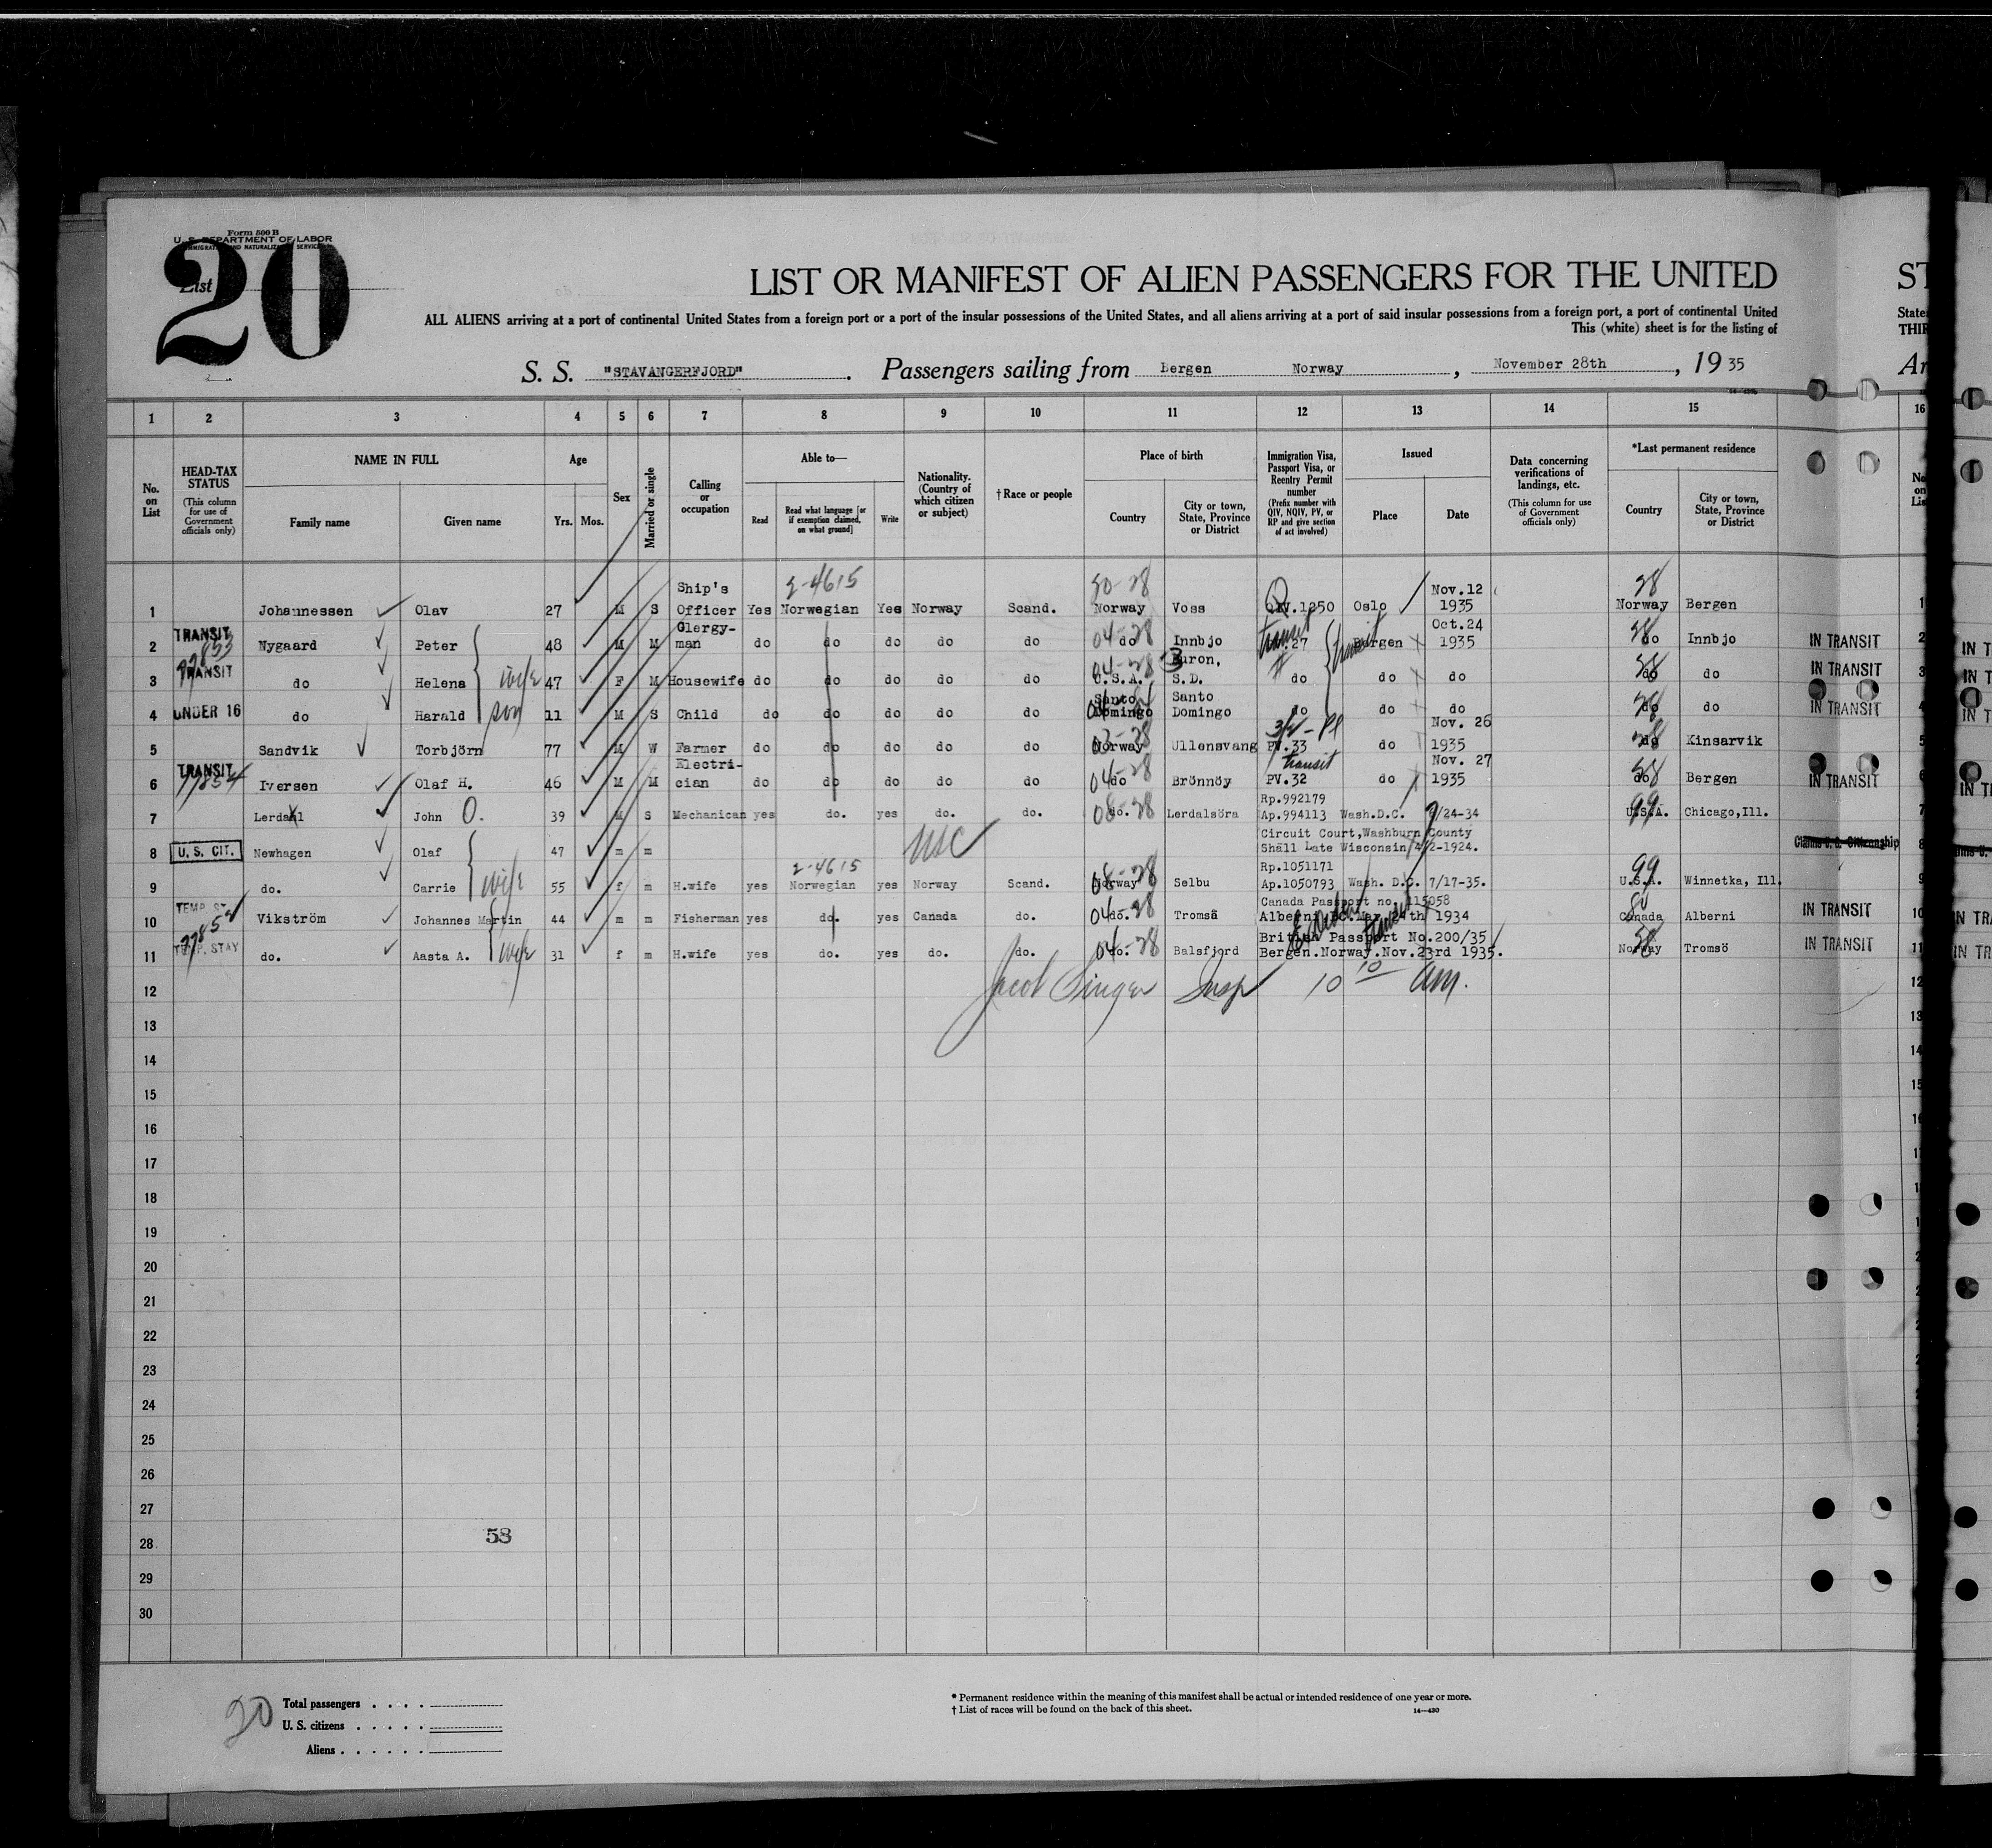 Form 500 B
U. S. DEPARTMENT OF LABOR
IMMIGRATION AND NATURALIZATION SERVICE
List
20
LIST OR MANIFEST OF ALIEN PASSENGERS FOR THE UNITED
ST
ALL ALIENS arriving at a port of continental United States from a foreign port or a port of the insular possessions of the United States, and all aliens arriving at a port of said insular possessions from a foreign port, a port of continental United
This (white) sheet is for the listing of
S. S. "STAVANGERFJORD". Passengers sailing from Bergen Norway, November 28th, 19 35
1 2 3 4 5 6 7 8 9 10 11 12 13 14 15 16
No. on List
HEAD-TAX STATUS
(This column for use of Government officials only)
NAME IN FULL
Family name
Given name
Age
Yrs. Mos.
Sex
Married or single
Calling or occupation
Able to—
Read
Read what language [or if exemption claimed, on what ground]
Write
Nationality. (Country of which citizen or subject)
†Race or people
Place of birth
Country
City or town, State, Province or District
Immigration Visa, Passport Visa, or Reentry Permit number
(Prefix number with QIV, NQIV, PV, or RP and give section of act involved)
Issued
Place
Date
Data concerning verifications of landings, etc.
(This column for use of Government officials only)
*Last permanent residence
Country
City or town, State, Province or District
2-4615 30-28 28
1 Johannessen Olav 27 M S Ship's Officer Yes Norwegian Yes Norway Scand. Norway Voss QIV.1250 Oslo Nov.12 1935 Norway Bergen
2 TRANSIT Nygaard Peter 48 M M Clergy-man do do do do do 04-28 do Innbjo transit 27 Bergen Oct.24 1935 do Innbjo IN TRANSIT
3 TRANSIT do Helena wife 47 F M Housewife do do do do do 04-28 U.S.A. Huron, S.D. do do do do do IN TRANSIT
4 UNDER 16 do Harald son 11 M S Child do do do do do Santo Domingo Santo Domingo do do do do do IN TRANSIT
5 Sandvik Torbjörn 77 M W Farmer do do do do do Norway Ullensvang PV.33 do Nov. 26 1935 do Kinsarvik
6 TRANSIT 77854 Iversen Olaf H. 46 M M Electri-cian do do do do do 04-28 do Brönnöy transit PV.32 do Nov. 27 1935 do Bergen IN TRANSIT
7 Lerdahl John O. 39 M S Mechanican yes do. yes do. do. 08-28 do. Lerdalsöra Rp.992179 Ap.994113 Wash.D.C. 9/24-34 99 U.S.A. Chicago,Ill.
8 U. S. CIT. Newhagen Olaf 47 m m USC Circuit Court,Washburn County Shäll Late Wisconsin 4/2-1924. Claims U. S. Citizenship
2-4615
9 do. Carrie wife 55 f m H.wife yes Norwegian yes Norway Scand. 08-28 Norway Selbu Rp.1051171 Ap.1050793 Wash. D.C. 7/17-35. 99 U.S.A. Winnetka, Ill.
10 Vikström Johannes Martin 44 m m Fisherman yes do. yes Canada do. 04-28 do. Tromsä Canada Passport no. 115058 Alberni BC.May 24th 1934 Canada Alberni IN TRANSIT
11 TEMP. STAY do. Aasta A. wife 31 f m H.wife yes do. yes do. do. 04-28 do. Balsfjord British Passport No.200/35 Bergen.Norway.Nov.23rd 1935. Norway Tromsö IN TRANSIT
Jacob Singer Insp 10 10 am.
12
13
14
15
16
17
18
19
20
21
22
23
24
25
26
27
28
29
30
53
20
Total passengers
U. S. citizens
Aliens
* Permanent residence within the meaning of this manifest shall be actual or intended residence of one year or more.
† List of races will be found on the back of this sheet.
14—430